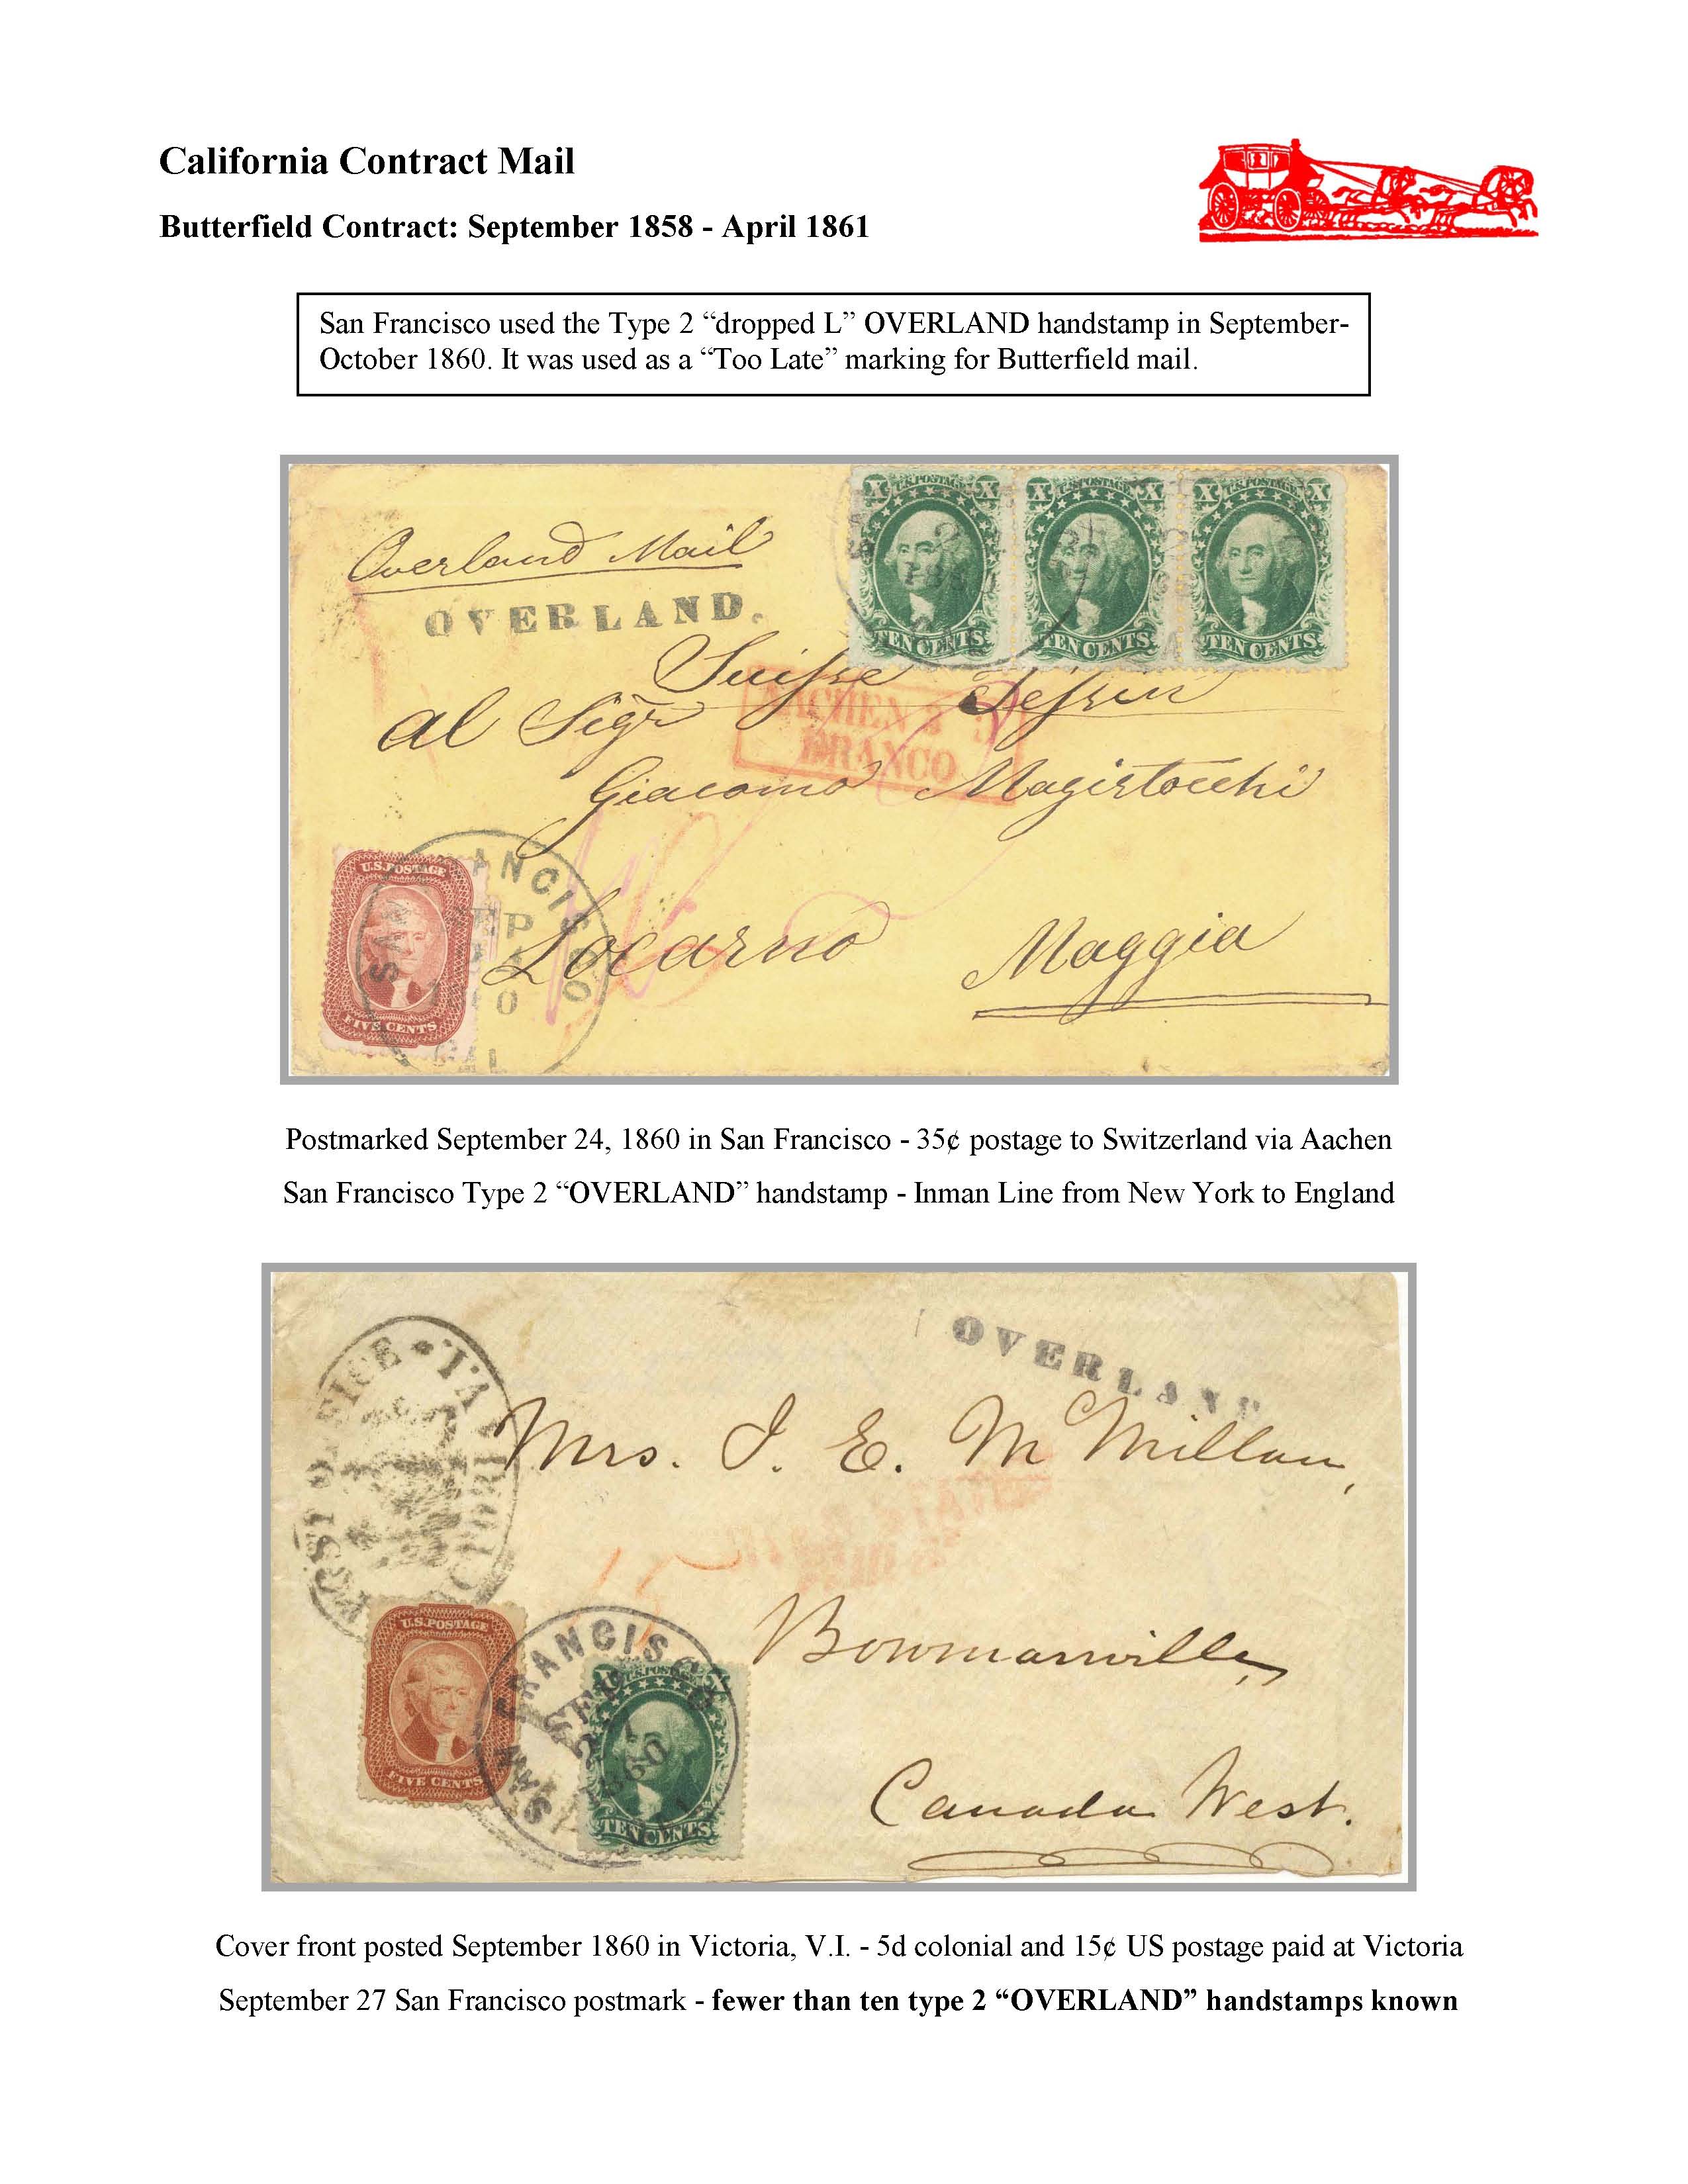 California Contract Mail
Butterfield Contract: September 1858 - April 1861
San Francisco used the Type 2 “dropped L” OVERLAND handstamp in September-
October 1860. It was used as a “Too Late” marking for Butterfield mail.
U.S. POSTAGE U.S. POSTAGE U.S. POSTAGE
X X X X X X
Overland Mail
OVERLAND.
TEN CENTS TEN CENTS TEN CENTS
Suisse Tessin
al Sigr
AACHEN 3
FRANCO
Giacomo Magistocchi
U.S. POSTAGE
SAN FRANCISCO
SEP
24
Locarno Maggia
FIVE CENTS
CAL
Postmarked September 24, 1860 in San Francisco - 35¢ postage to Switzerland via Aachen
San Francisco Type 2 “OVERLAND” handstamp - Inman Line from New York to England
OVERLAND
POST OFFICE VICTORIA
Mrs. J. E. McMillan,
15
U.S. POSTAGE
SAN FRANCISCO
SEP
27
1860
Bowmanville,
FIVE CENTS
TEN CENTS
Canada West.
Cover front posted September 1860 in Victoria, V.I. - 5d colonial and 15¢ US postage paid at Victoria
September 27 San Francisco postmark - fewer than ten type 2 “OVERLAND” handstamps known